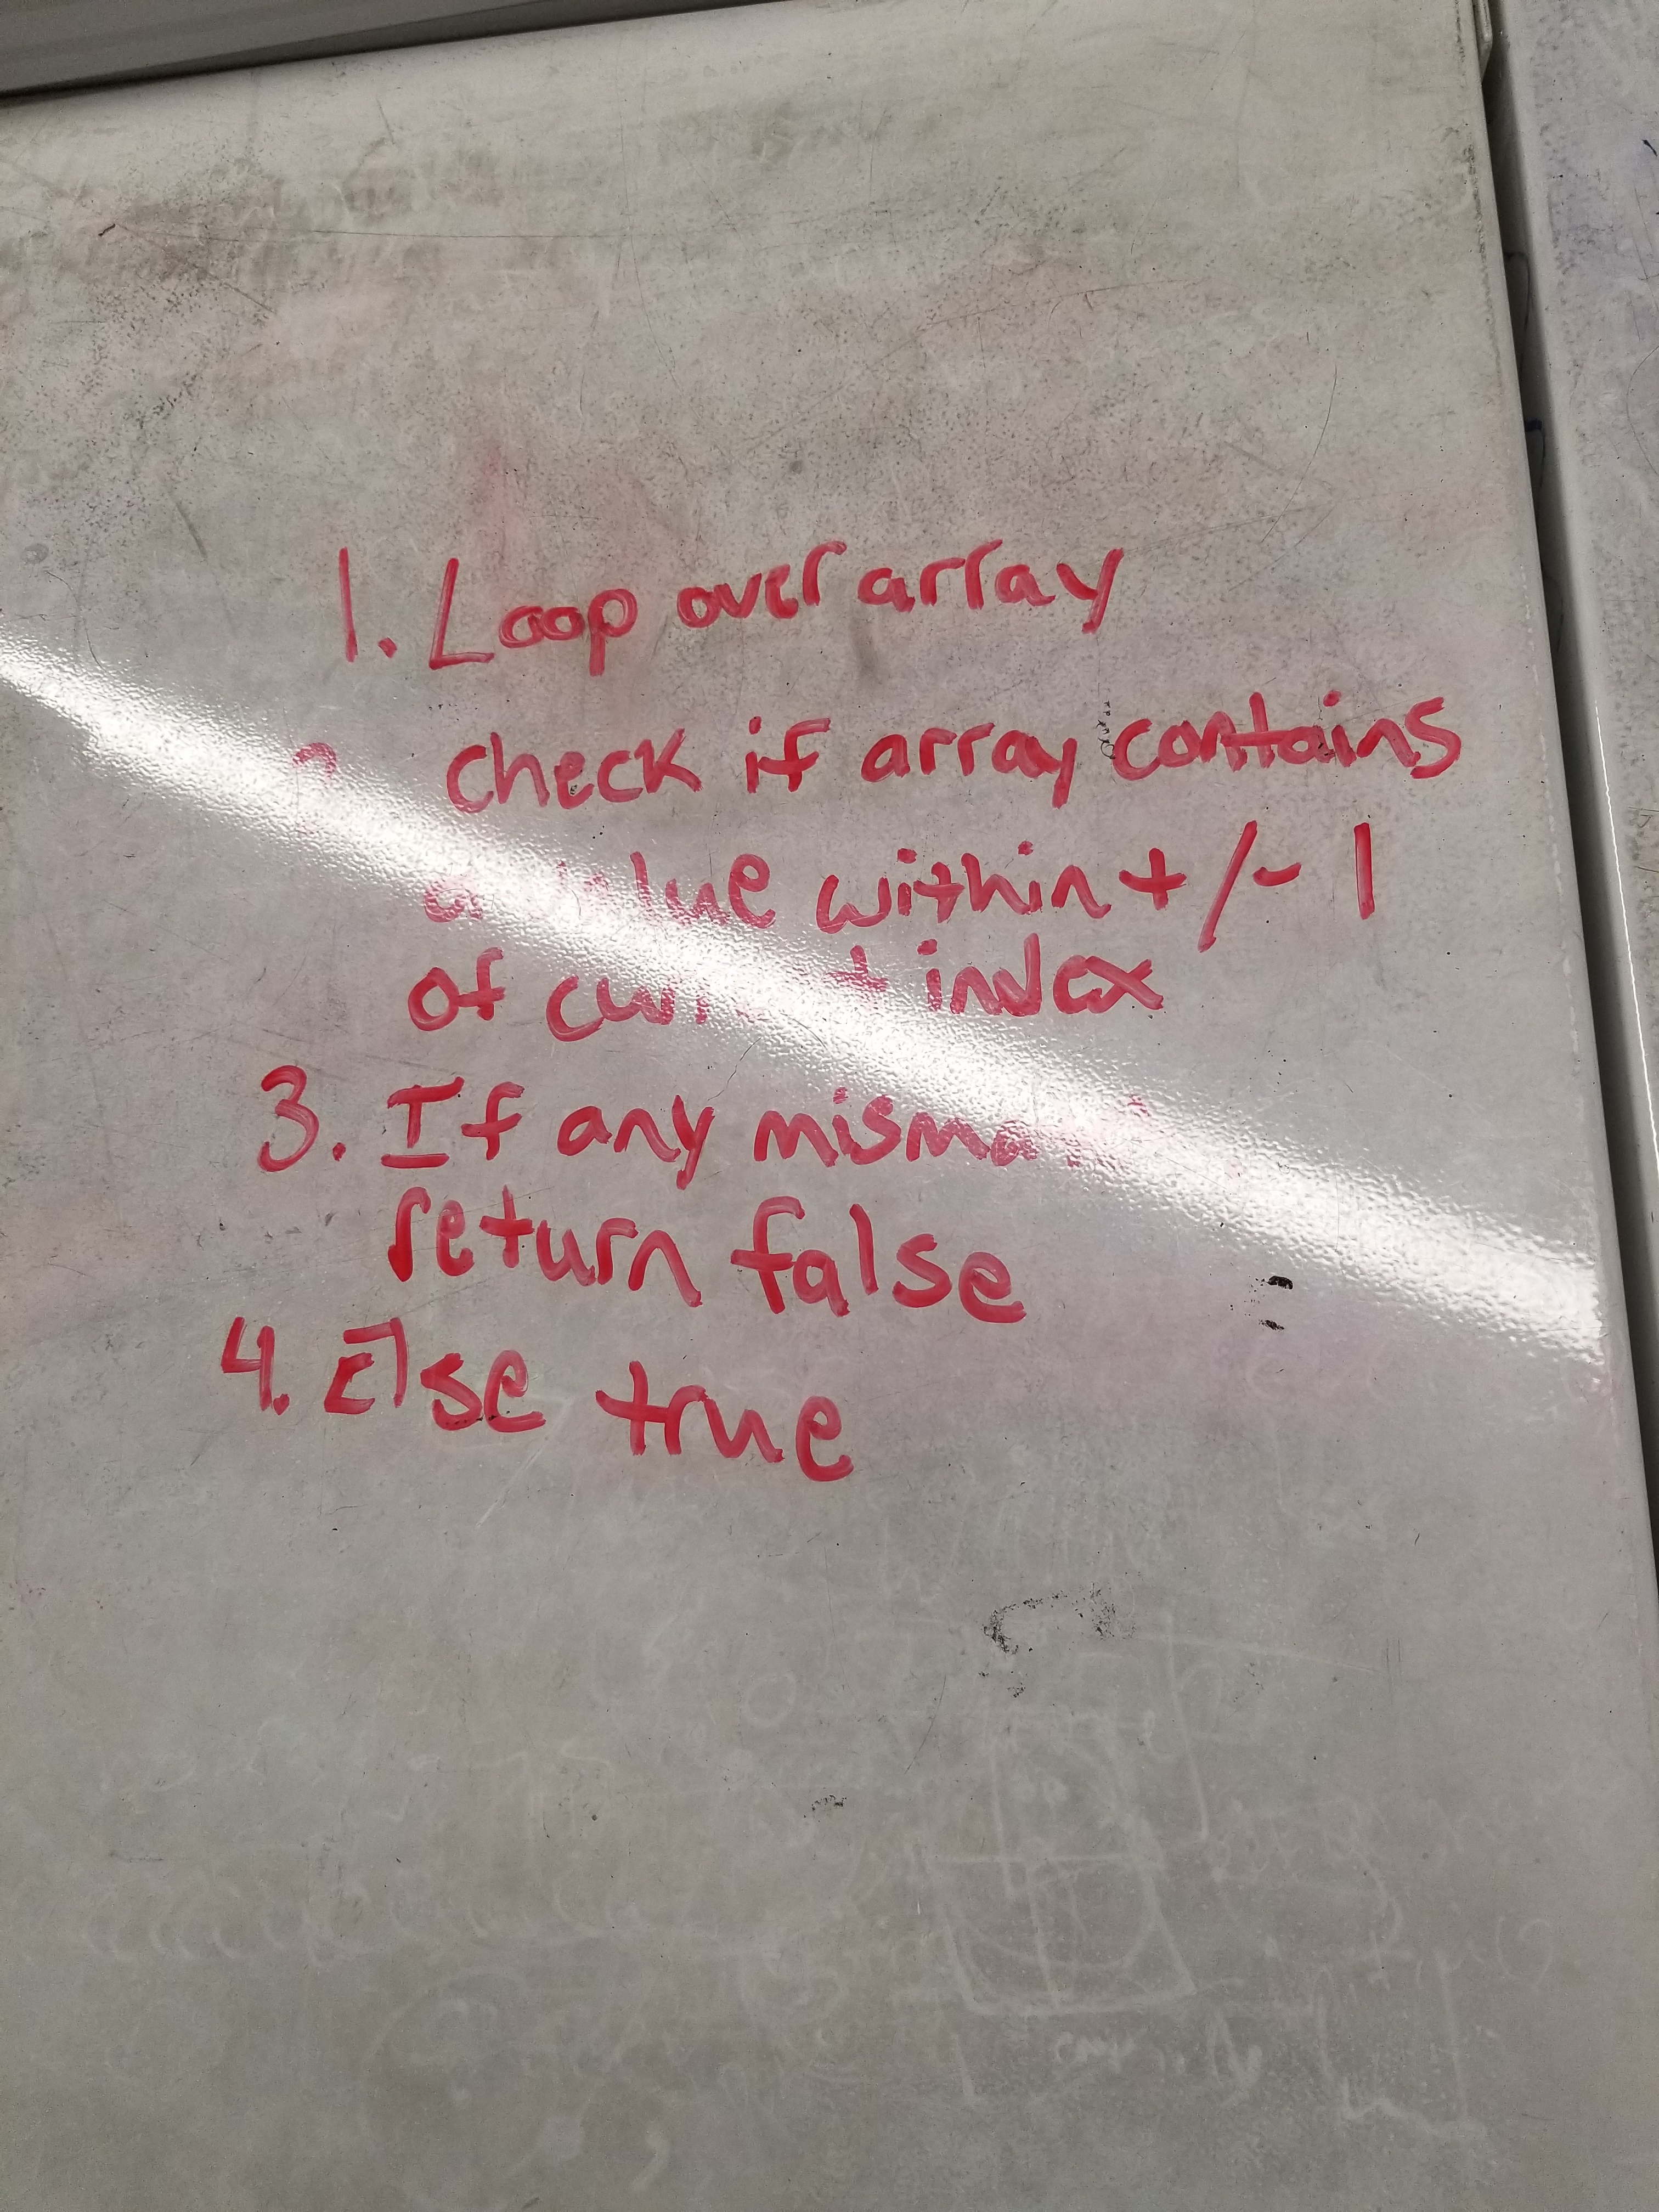 1. Loop over array
check if array contains
value within +/- 1
of current index
3. If any
return false
4. Else true